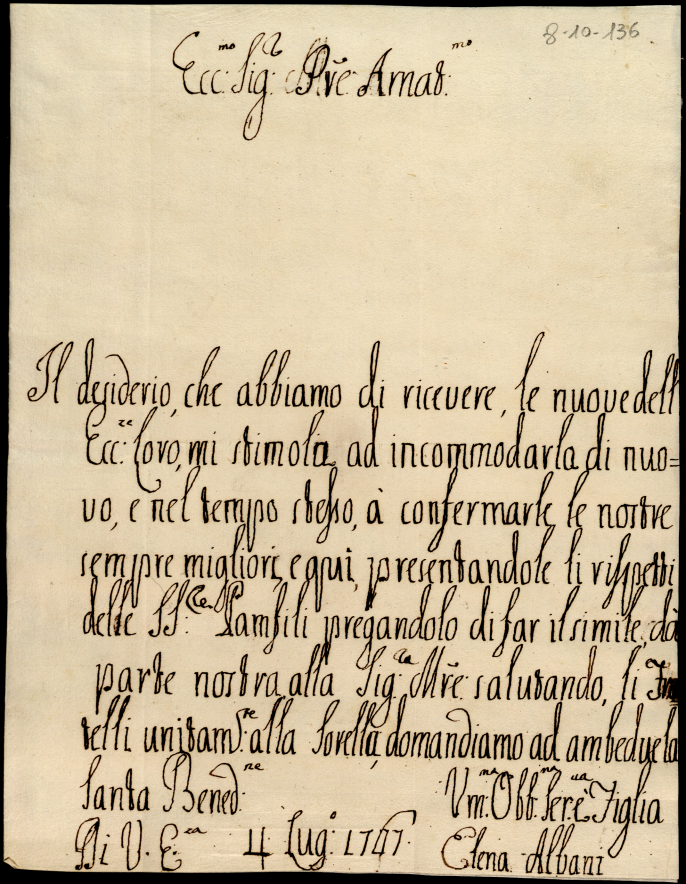 8-10-136
Ecc:mo Sig:r Pre Amat:mo
Il desiderio, che abbiamo di ricevere, le nuove dell
Ecc:ze Loro, mi stimola, ad incommodarla di nuo=
vo, e nel tempo stesso, à confermarle, le nostre
sempre migliori, e qui, presentandole li rispetti
delle SS:re Pamfili pregandolo di far il simile, dà
parte nostra, alla Sig:ra Mre: salutando, li Fra
telli unitam:te alla Sorella, domandiamo ad ambedue la
Santa Bened:ne
Vm:ma Obb:ma Ser:va è Figlia
Di V. E:za 4 Lug:o 1747
Elena Albani